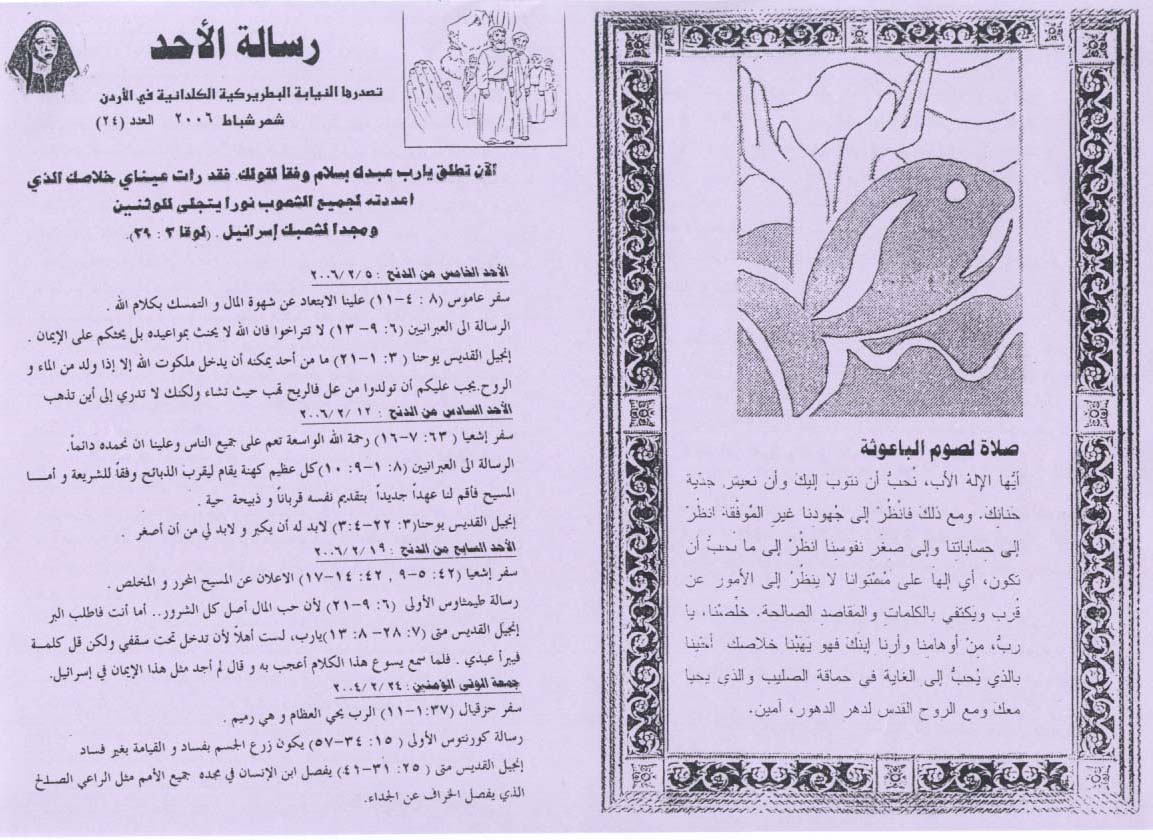 صلاة لصوم الباعوثة
أيّها الإله الأب، نُحبُّ أن نتوبَ إليكَ وأن نعيش جدّية
حنانكَ. ومع ذلك فانْظُرْ إلى جُهودنا غير المُوفّقة انظرْ
إلى حساباتِنا وإلى صغَر نفوسِنا انظُرْ إلى ما نحبُّ أن
نكون، أي إلهاً على مُستوانا لا ينظُرْ إلى الأمور عن
قُرب ويَكتفي بالكلماتِ والمَقاصد الصالحة. خلّصْنا، يا
ربُّ، مِنْ أوهامِنا وأرِنا إبنكَ فهو يَهَبُنا خلاصكَ. أحْيِنا
بالذي يُحبُّ إلى الغاية في حماقة الصليب والذي يحيا
معكَ ومع الروح القدس لدهر الدهور، آمين.
رسالة الأحد
تصدرها النيابة البطريركية الكلدانية في الأردن
شهر شباط ٢٠٠٦ العدد (٢٤)
الآن تطلق يارب عبدك بسلام وفقاً لقولك. فقد رات عيناي خلاصك الذي
اعددته لجميع الشعوب نورا يتجلى للوثنين
ومجدا لشعبك إسرائيل . (لوقا ٢ : ٢٩).
الأحد الخامس من الدنح : ٢٠٠٦/٢/٥
سفر عاموس (٨ : ٤-١١) علينا الابتعاد عن شهوة المال و التمسك بكلام الله .
الرسالة الى العبرانيين (٦: ٩- ١٣) لا تتراخوا فان الله لا يحنث بمواعيده بل يحثكم على الإيمان .
إنجيل القديس يوحنا (٣: ١-٢١) ما من أحد يمكنه أن يدخل ملكوت الله إلا إذا ولد من الماء و
الروح.يجب عليكم أن تولدوا من عل فالريح تهب حيث تشاء ولكنك لا تدري إلى أين تذهب
الأحد السادس من الدنح : ٢٠٠٦/٢/١٢
سفر إشعيا ( ٦٣: ٧-١٦) رحمة الله الواسعة تعم على جميع الناس وعلينا ان نحمده دائماً.
الرسالة الى العبرانيين (٨: ١-٩: ١٠)كل عظيم كهنة يقام ليقرب الذبائح وفقاً للشريعة و أمـــا
المسيح فأقم لنا عهداً جديداً بتقديم نفسه قرباناً و ذبيحة حية .
إنجيل القديس يوحنا(٣: ٢٢-٣:٤) لابد له أن يكبر و لابد لي من أن أصغر .
الأحد السابع من الدنح : ٢٠٠٦/٢/١٩
سفر إشعيا (٤٢: ٥-٩ , ٤٢: ١٤-١٧) الاعلان عن المسيح المحرر و المخلص .
رسالة طيمثاوس الأولى (٦: ٩-٢١) لأن حب المال أصل كل الشرور.. أما أنت فاطلب البر
إنجيل القديس متى (٧: ٢٨- ٨: ١٣)يارب، لست أهلاً لأن تدخل تحت سقفي ولكن قل كلمة
فيبرأ عبدي . فلما سمع يسوع هذا الكلام أعجب به و قال لم أجد مثل هذا الإيمان في إسرائيل.
جمعة الموتى المؤمنين : ٢٠٠٤/٢/٢٤
سفر حزقيال (١:٣٧-١١) الرب يحي العظام و هي رميم .
رسالة كورنثوس الأولى ( ١٥: ٣٤-٥٧) يكون زرع الجسم بفساد و القيامة بغير فساد
إنجيل القديس متى ( ٢٥: ٣١-٤٦) يفصل ابن الإنسان في مجده جميع الأمم مثل الراعي الصـالح
الذي يفصل الخراف عن الجداء.